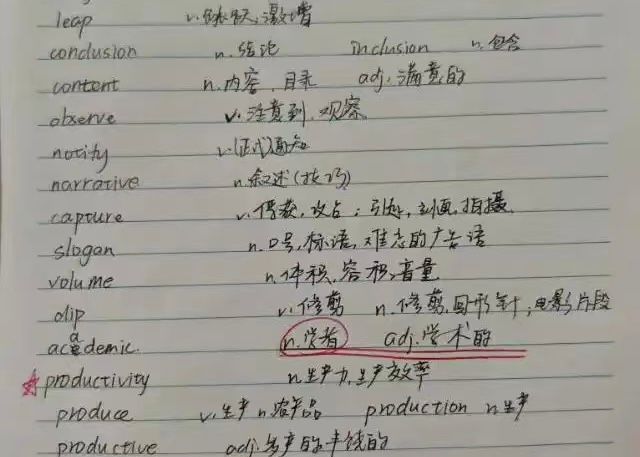 leap v.跳跃,激增
conclusion n.结论 inclusion n.包含
content n.内容,目录 adj.满意的
observe v.注意到,观察
notify v.(正式)通知
narrative n.叙述(技巧)
capture v.俘获,攻占;引起,刻画,拍摄
slogan n.口号,标语,难忘的广告语
volume n.体积,容积,音量
clip v.修剪 n.修剪,回形针;电影片段
academic. n.学者 adj.学术的
☆productivity n.生产力,生产效率
produce v.生产 n.农产品 production n.生产
productive adj.多产的丰饶的